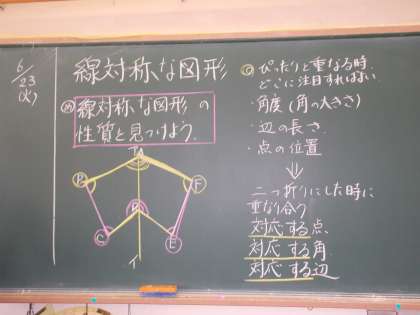 6/23
(火)
線対称な図形
め 線対称な図形の
性質を見つけよう。
ア
A
B
F
D
C
E
イ
ぴったりと重なる時、
どこに注目すればよい
・角度(角の大きさ)
・辺の長さ
・点の位置
⇓
二つ折りにした時に
重なり合う
対応する点
対応する角
対応する辺